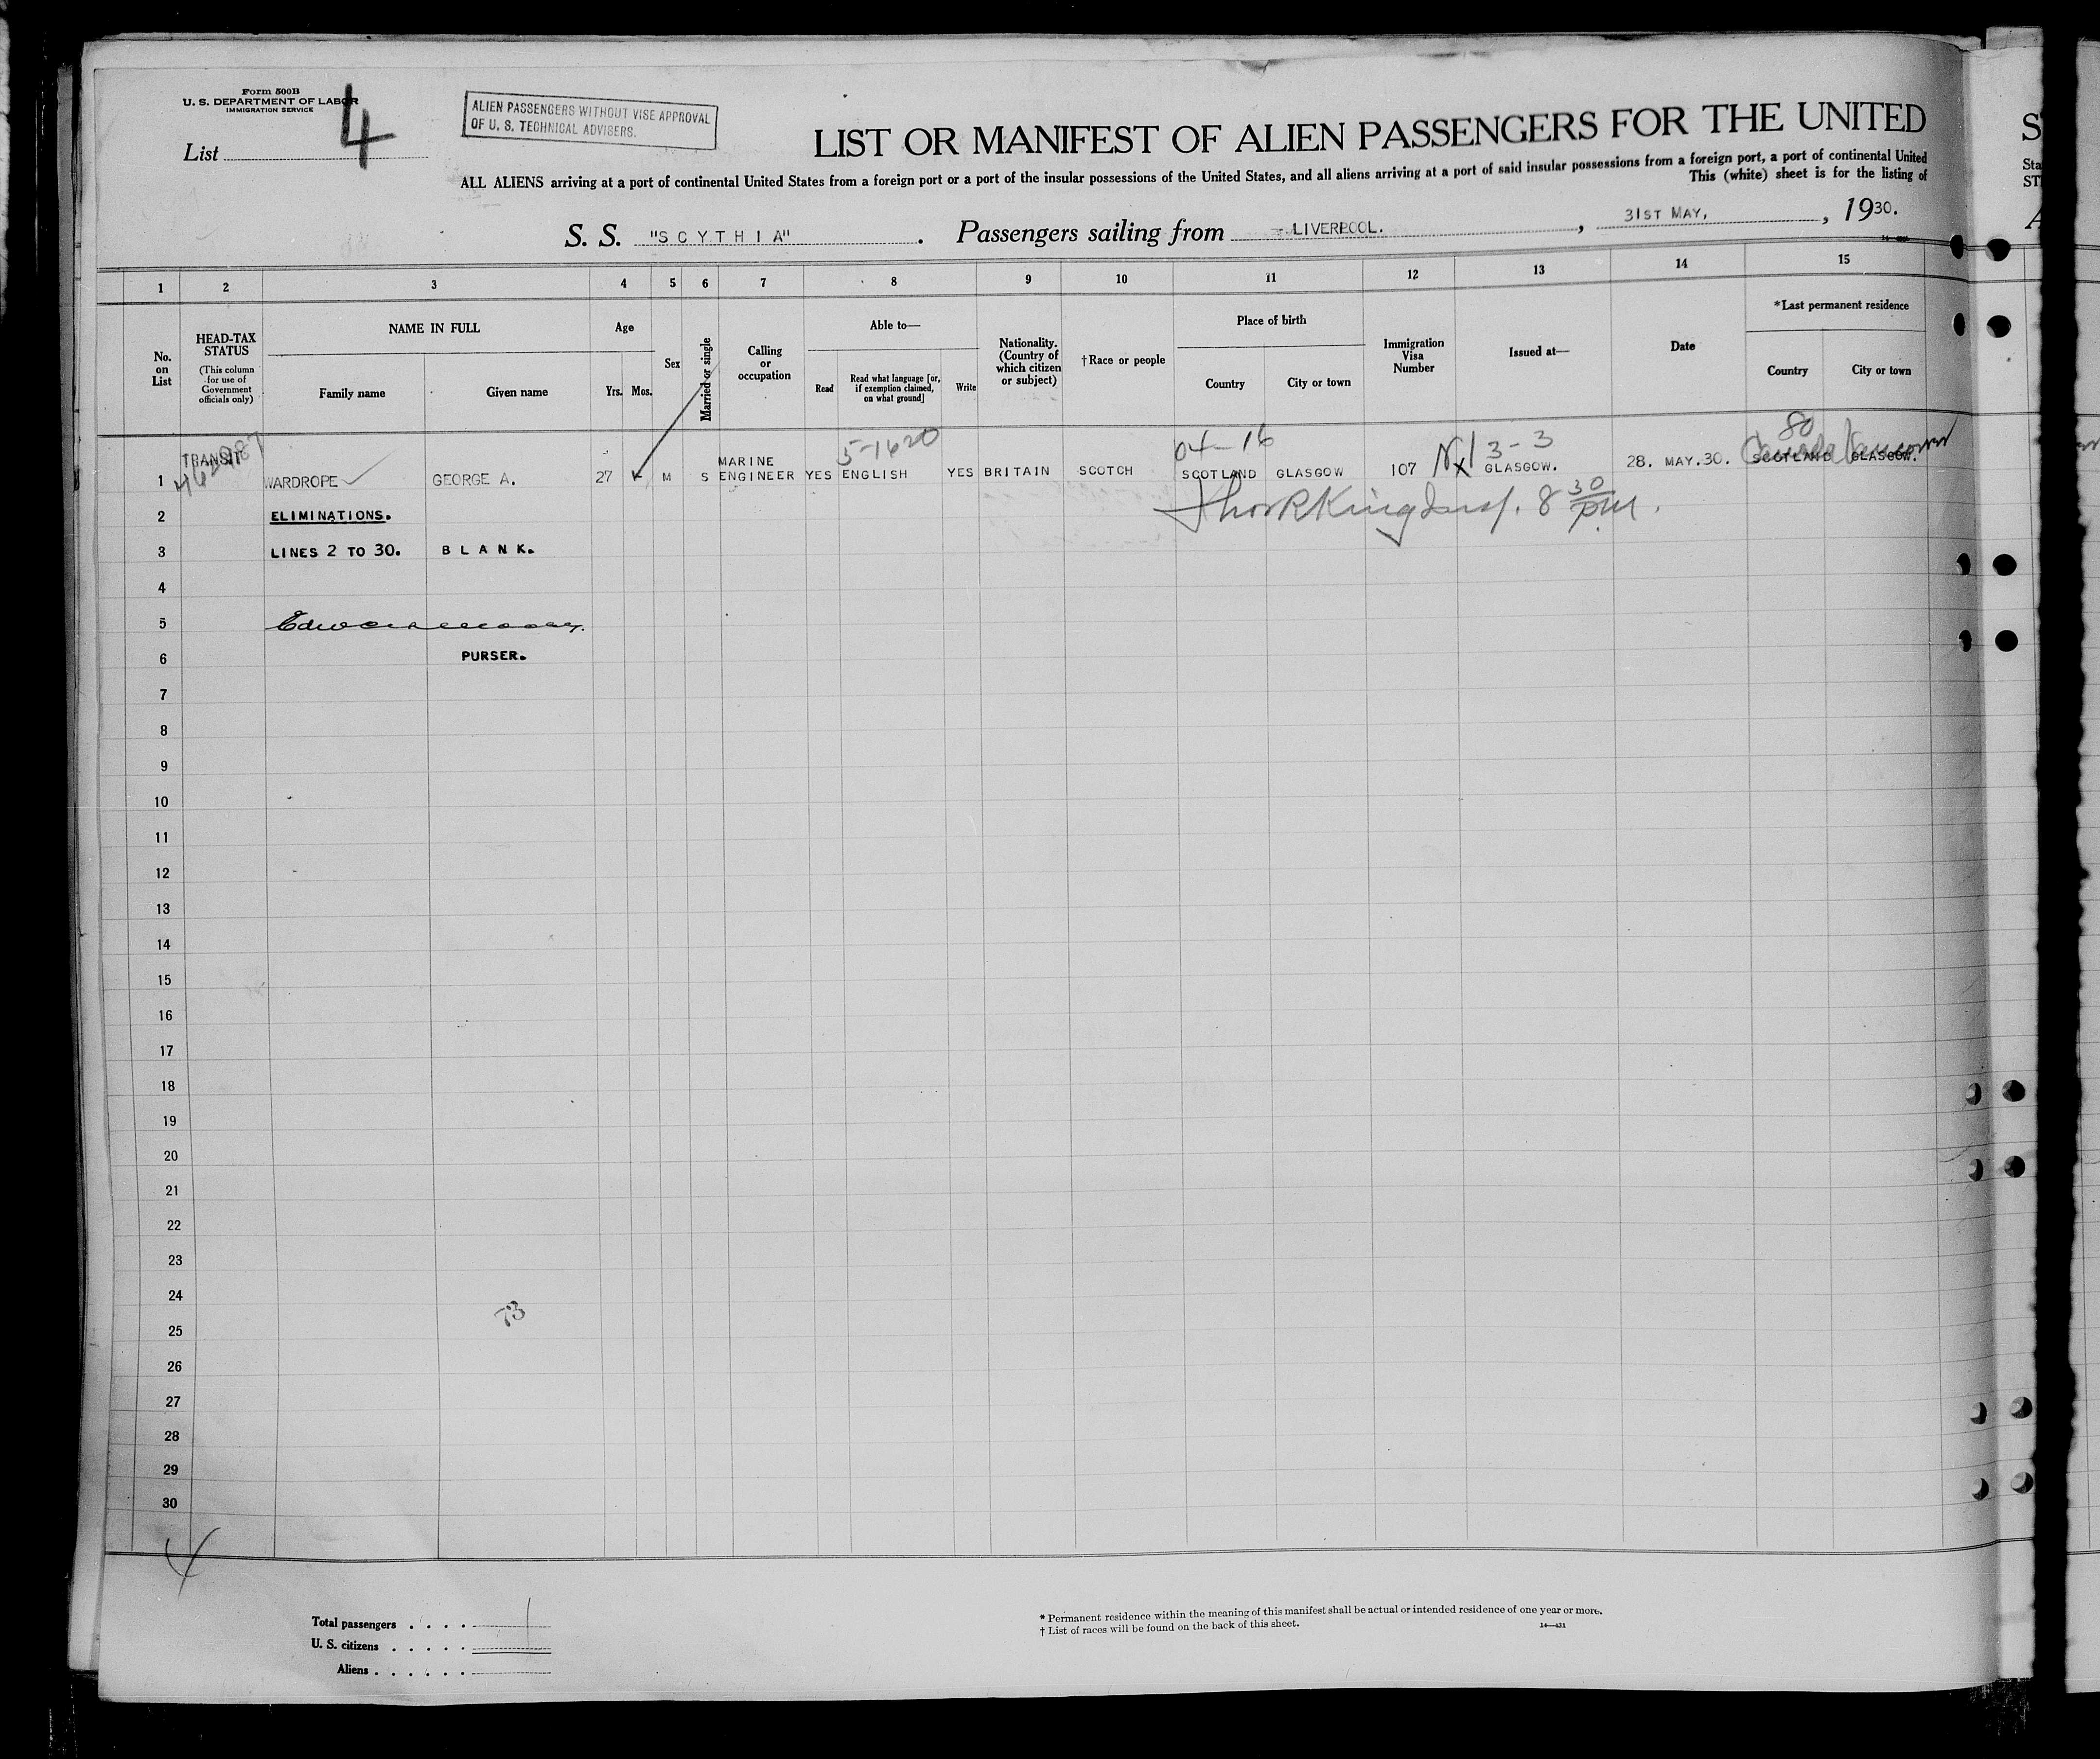 Form 500B
U. S. DEPARTMENT OF LABOR
IMMIGRATION SERVICE
List 4
ALIEN PASSENGERS WITHOUT VISE APPROVAL
OF U. S. TECHNICAL ADVISERS.
LIST OR MANIFEST OF ALIEN PASSENGERS FOR THE UNITED
ALL ALIENS arriving at a port of continental United States from a foreign port or a port of the insular possessions of the United States, and all aliens arriving at a port of said insular possessions from a foreign port, a port of continental United
This (white) sheet is for the listing of
S. S. "SCYTHIA" . Passengers sailing from LIVERPOOL. , 31ST MAY, , 1930.
1 2 3 4 5 6 7 8 9 10 11 12 13 14 15
No. on List
HEAD-TAX STATUS
(This column for use of Government officials only)
NAME IN FULL
Family name Given name
Age
Yrs. Mos.
Sex
Married or single
Calling or occupation
Able to—
Read
Read what language [or, if exemption claimed, on what ground]
Write
Nationality. (Country of which citizen or subject)
†Race or people
Place of birth
Country City or town
Immigration Visa Number
Issued at—
Date
*Last permanent residence
Country City or town
5-1620 04-16 3-3 80
1 TRANSIT WARDROPE GEORGE A. 27 M S MARINE ENGINEER YES ENGLISH YES BRITAIN SCOTCH SCOTLAND GLASGOW 107 GLASGOW. 28. MAY.30. SCOTLAND GLASGOW. Canada Vancouver
2 ELIMINATIONS. 8 30 pm.
3 LINES 2 TO 30. BLANK.
4
5
6 PURSER.
7
8
9
10
11
12
13
14
15
16
17
18
19
20
21
22
23
24
73
25
26
27
28
29
30
Total passengers . . . . 1
U. S. citizens . . . . .
Aliens . . . . . .
* Permanent residence within the meaning of this manifest shall be actual or intended residence of one year or more.
† List of races will be found on the back of this sheet.